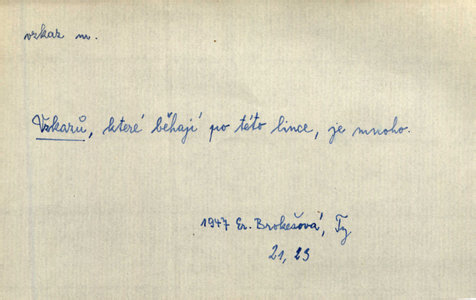 vzkaz m.
Vzkazů, které běhají po této lince, je mnoho.
1947 Er. Brokešová, Ty
21, 23